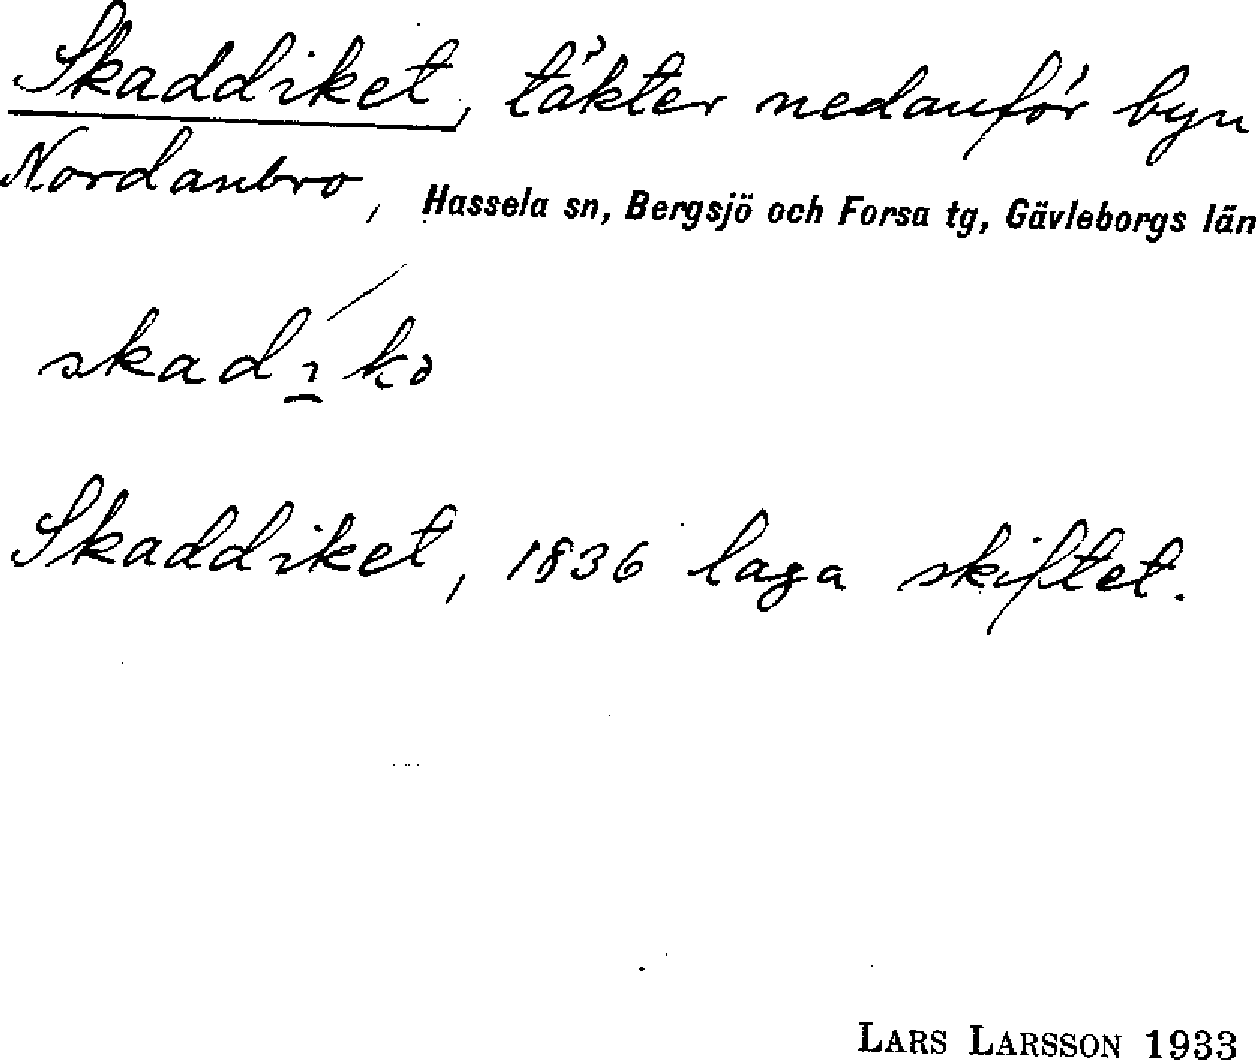 Skaddiket, täkter nedanför byn
Nordanbro, Hassela sn, Bergsjö och Forsa tg, Gävleborgs län
Skaddiket, 1836 laga skiftet.
LARS LARSSON 1933